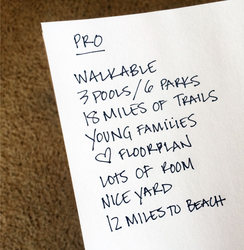 PRO
WALKABLE
3 POOLS/6 PARKS
18 MILES OF TRAILS
YOUNG FAMILIES
♡ FLOORPLAN
LOTS OF ROOM
NICE YARD
12 MILES TO BEACH